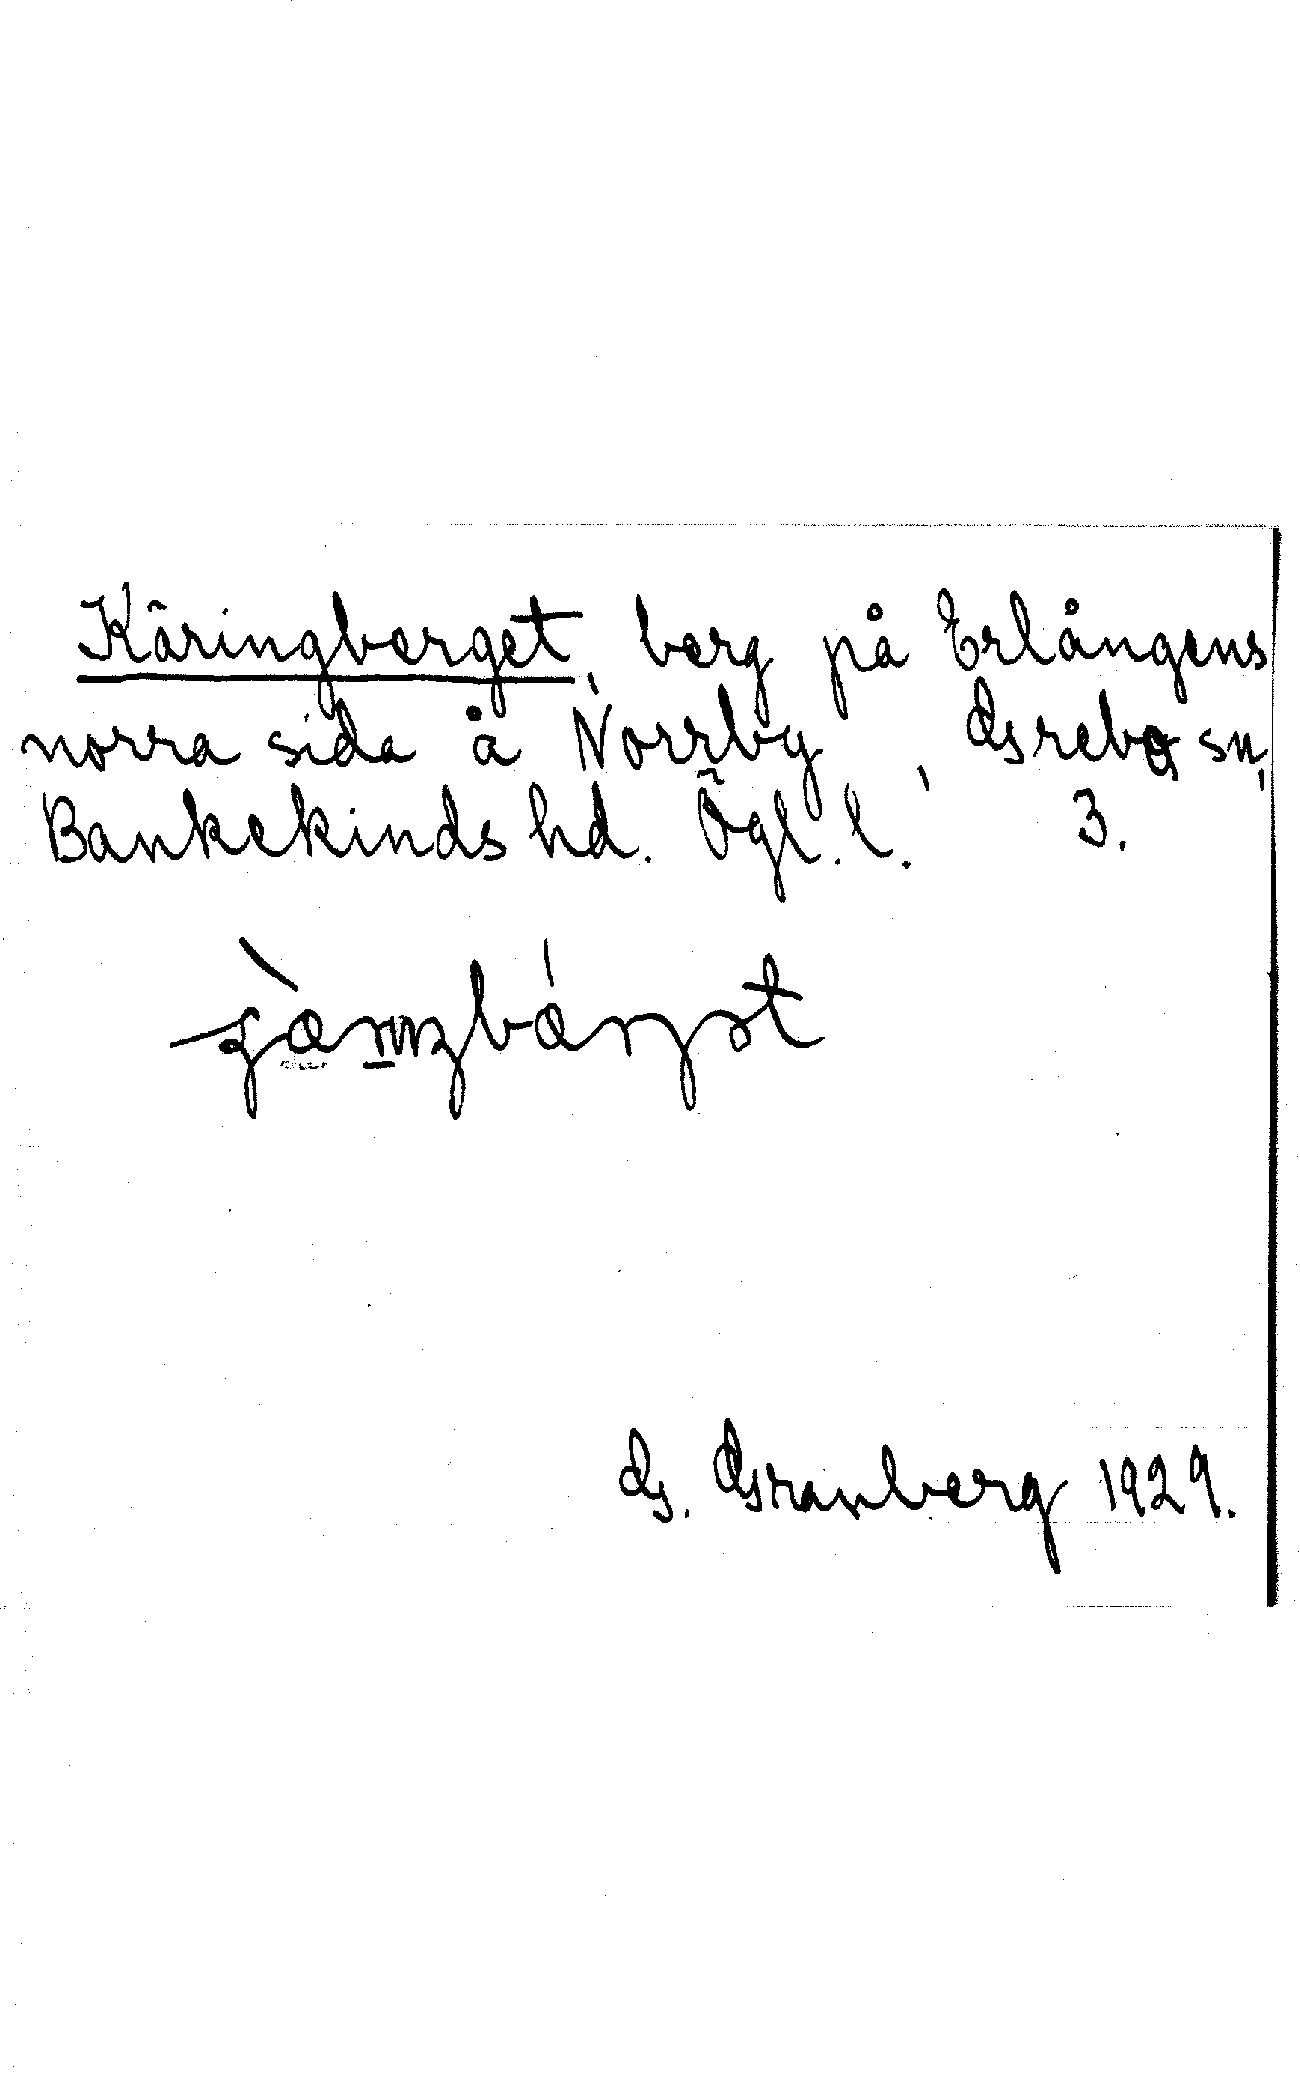 Käringberget, berg på Erlångens
norra sida å Norrby, Grebo sn,
Bankekinds hd. Ögl. l. 3.
G. Granberg 1929.